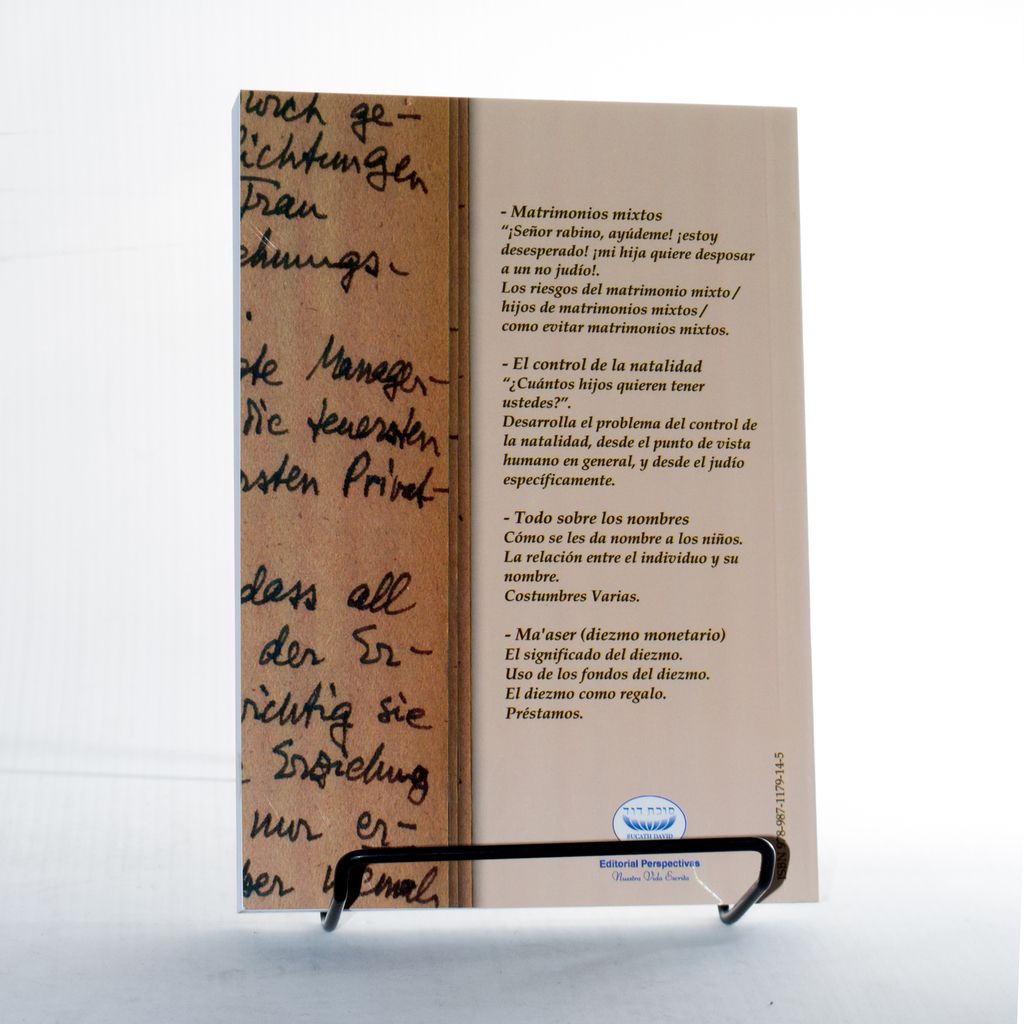 wich ge-
ichtungen
Frau
ehungs-
.
te Manager-
die teuersten
rsten Privat-
dass all
der Er-
wichtig sie
Erziehung
nur er-
ber niemals
- Matrimonios mixtos
“¡Señor rabino, ayúdeme! ¡estoy
desesperado! ¡mi hija quiere desposar
a un no judío!.
Los riesgos del matrimonio mixto /
hijos de matrimonios mixtos /
como evitar matrimonios mixtos.
- El control de la natalidad
“¿Cuántos hijos quieren tener
ustedes?”.
Desarrolla el problema del control de
la natalidad, desde el punto de vista
humano en general, y desde el judío
específicamente.
- Todo sobre los nombres
Cómo se les da nombre a los niños.
La relación entre el individuo y su
nombre.
Costumbres Varias.
- Ma'aser (diezmo monetario)
El significado del diezmo.
Uso de los fondos del diezmo.
El diezmo como regalo.
Préstamos.
סוכת דוד
SUCATH DAVID
Editorial Perspectivas
Nuestra Vida Escrita
ISBN 978-987-1179-14-5